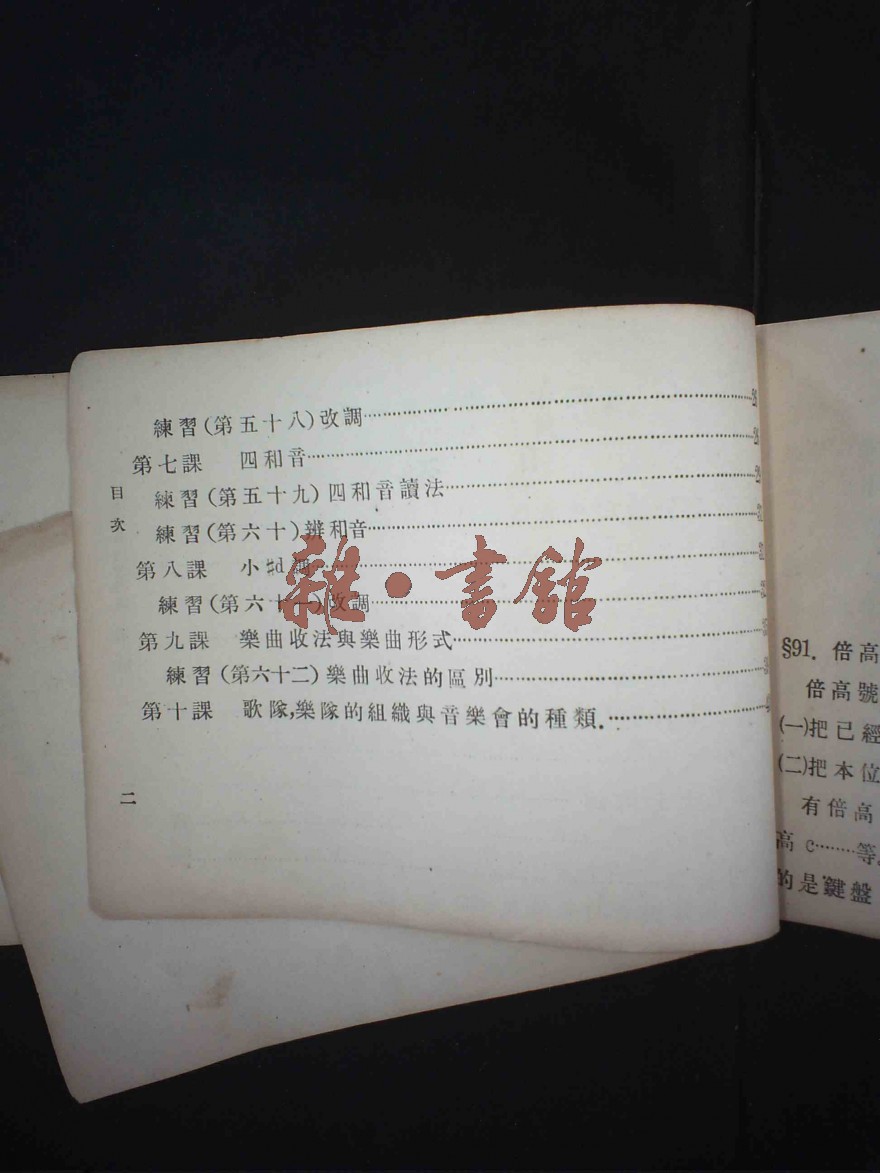 練習(第五十八)改調
第七課 四和音
練習(第五十九)四和音讀法
練習(第六十)辨和音
第八課 小
練習(第六十一)改調
第九課 樂曲收法與樂曲形式
練習(第六十二)樂曲收法的區別
第十課 歌隊,樂隊的組織與音樂會的種類.
目次
二
雜·書館
§91. 倍高
倍高號
(一)把已經
(二)把本位
有倍高
高c……等。
的是鍵盤